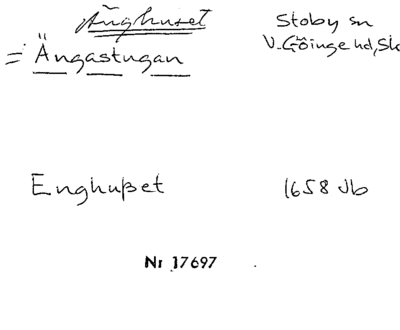 Änghuset Stoby sn
= Ängastugan V. Göinge hd, Sk
Enghuset 1658 Jb
Nr 17697